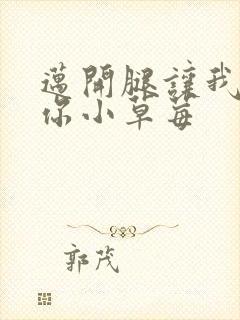 邁開腿讓我
你小草莓
郭茂